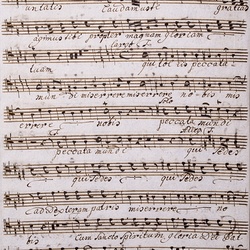 untates Laudamuste gratias
agimus tibi propter magnam gloriam
tuam qui tol lis peccata
mun di miserrere miserrere no bis mis
Solo
errere nobis peccata mundi
peccata mundi qui
qui sedes qui sedes
ad dexteram patris miserrere no
bis Cum Sancto Spiritu in gloria Dei Pat